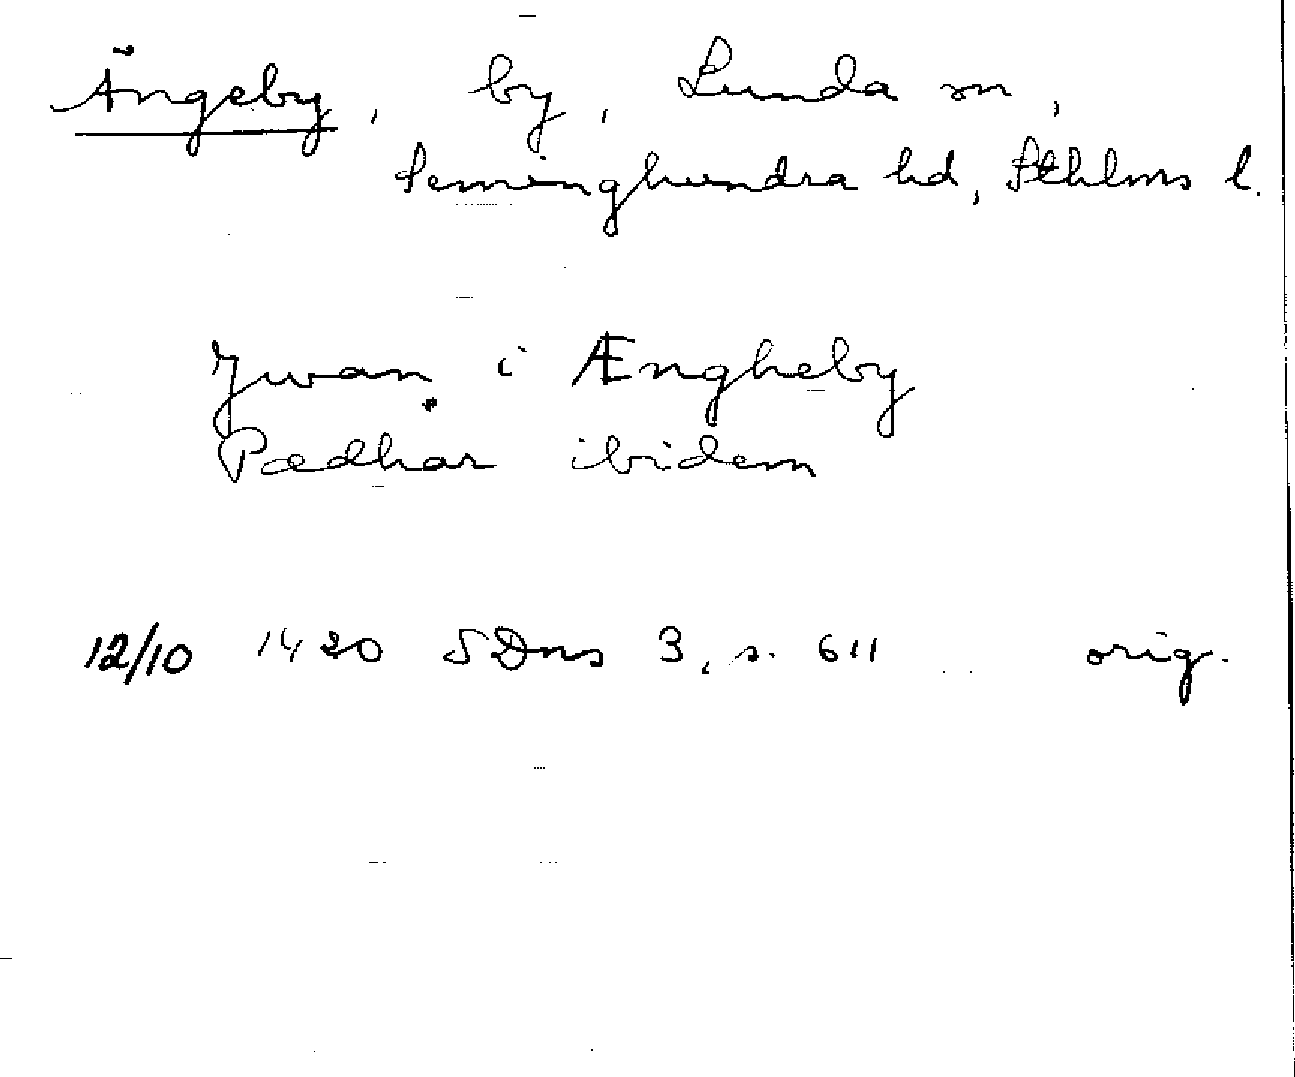 Ängeby, by, Lunda sn,
Seminghundra hd, Sthlms l.
Jwan i Ængheby
Pædhar ibidem
12/10 1420 SDns 3, s. 611 orig.